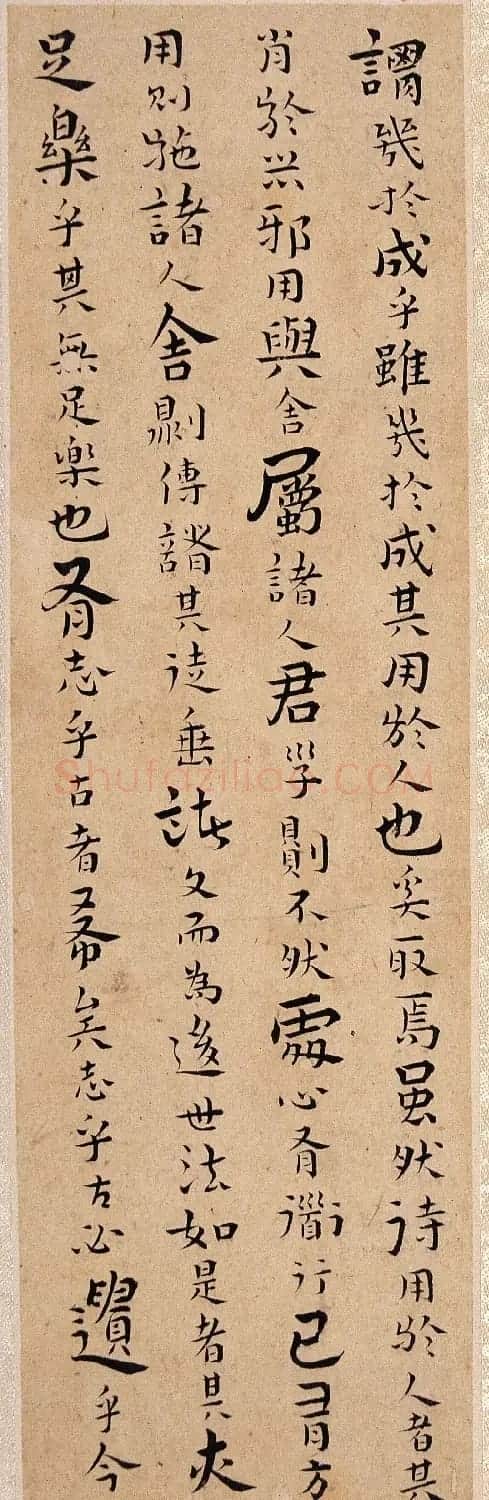 謂幾於成乎雖幾於成其用於人也奚取焉虽然待用於人者其
肖於器邪用與舍屬諸人君子則不然處心有道行己有方
用則施諸人舍則傳諸其徒垂諸文而為後世法如是者其亦
足樂乎其無足樂也有志乎古者希矣志乎古必遺乎今
Shufaziliao.COM